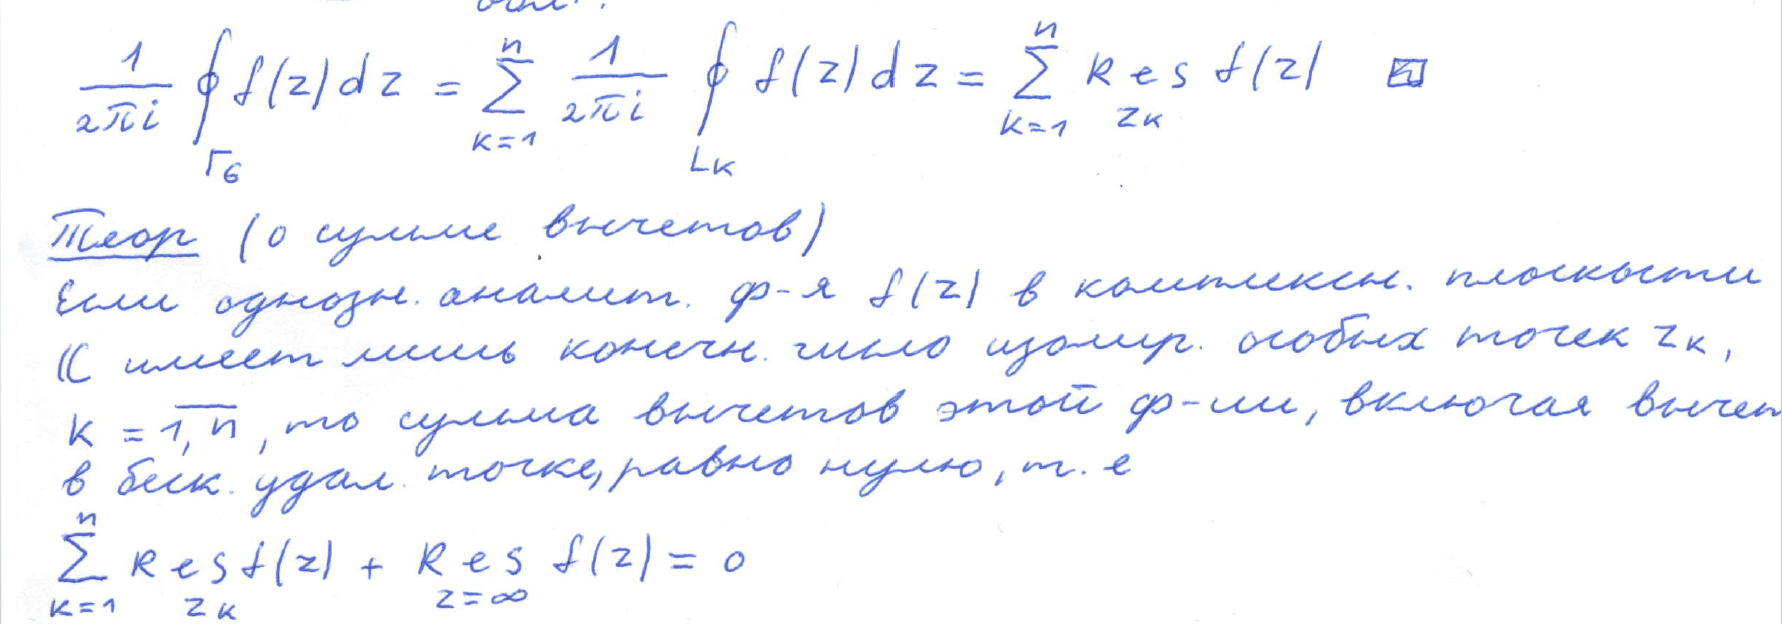 1/(2πi) ∮_{Γ_G} f(z)dz = ∑_{k=1}^{n} 1/(2πi) ∮_{L_k} f(z)dz = ∑_{k=1}^{n} Res_{z_k} f(z)
Теор (о сумме вычетов)
Если однозн. аналит. ф-я f(z) в комплексн. плоскости
ℂ имеет лишь конечн. число изолир. особых точек z_k,
k = \overline{1, n}, то сумма вычетов этой ф-ии, включая вычет
в беск. удал. точке, равно нулю, т.е
∑_{k=1}^{n} Res_{z_k} f(z) + Res_{z=∞} f(z) = 0